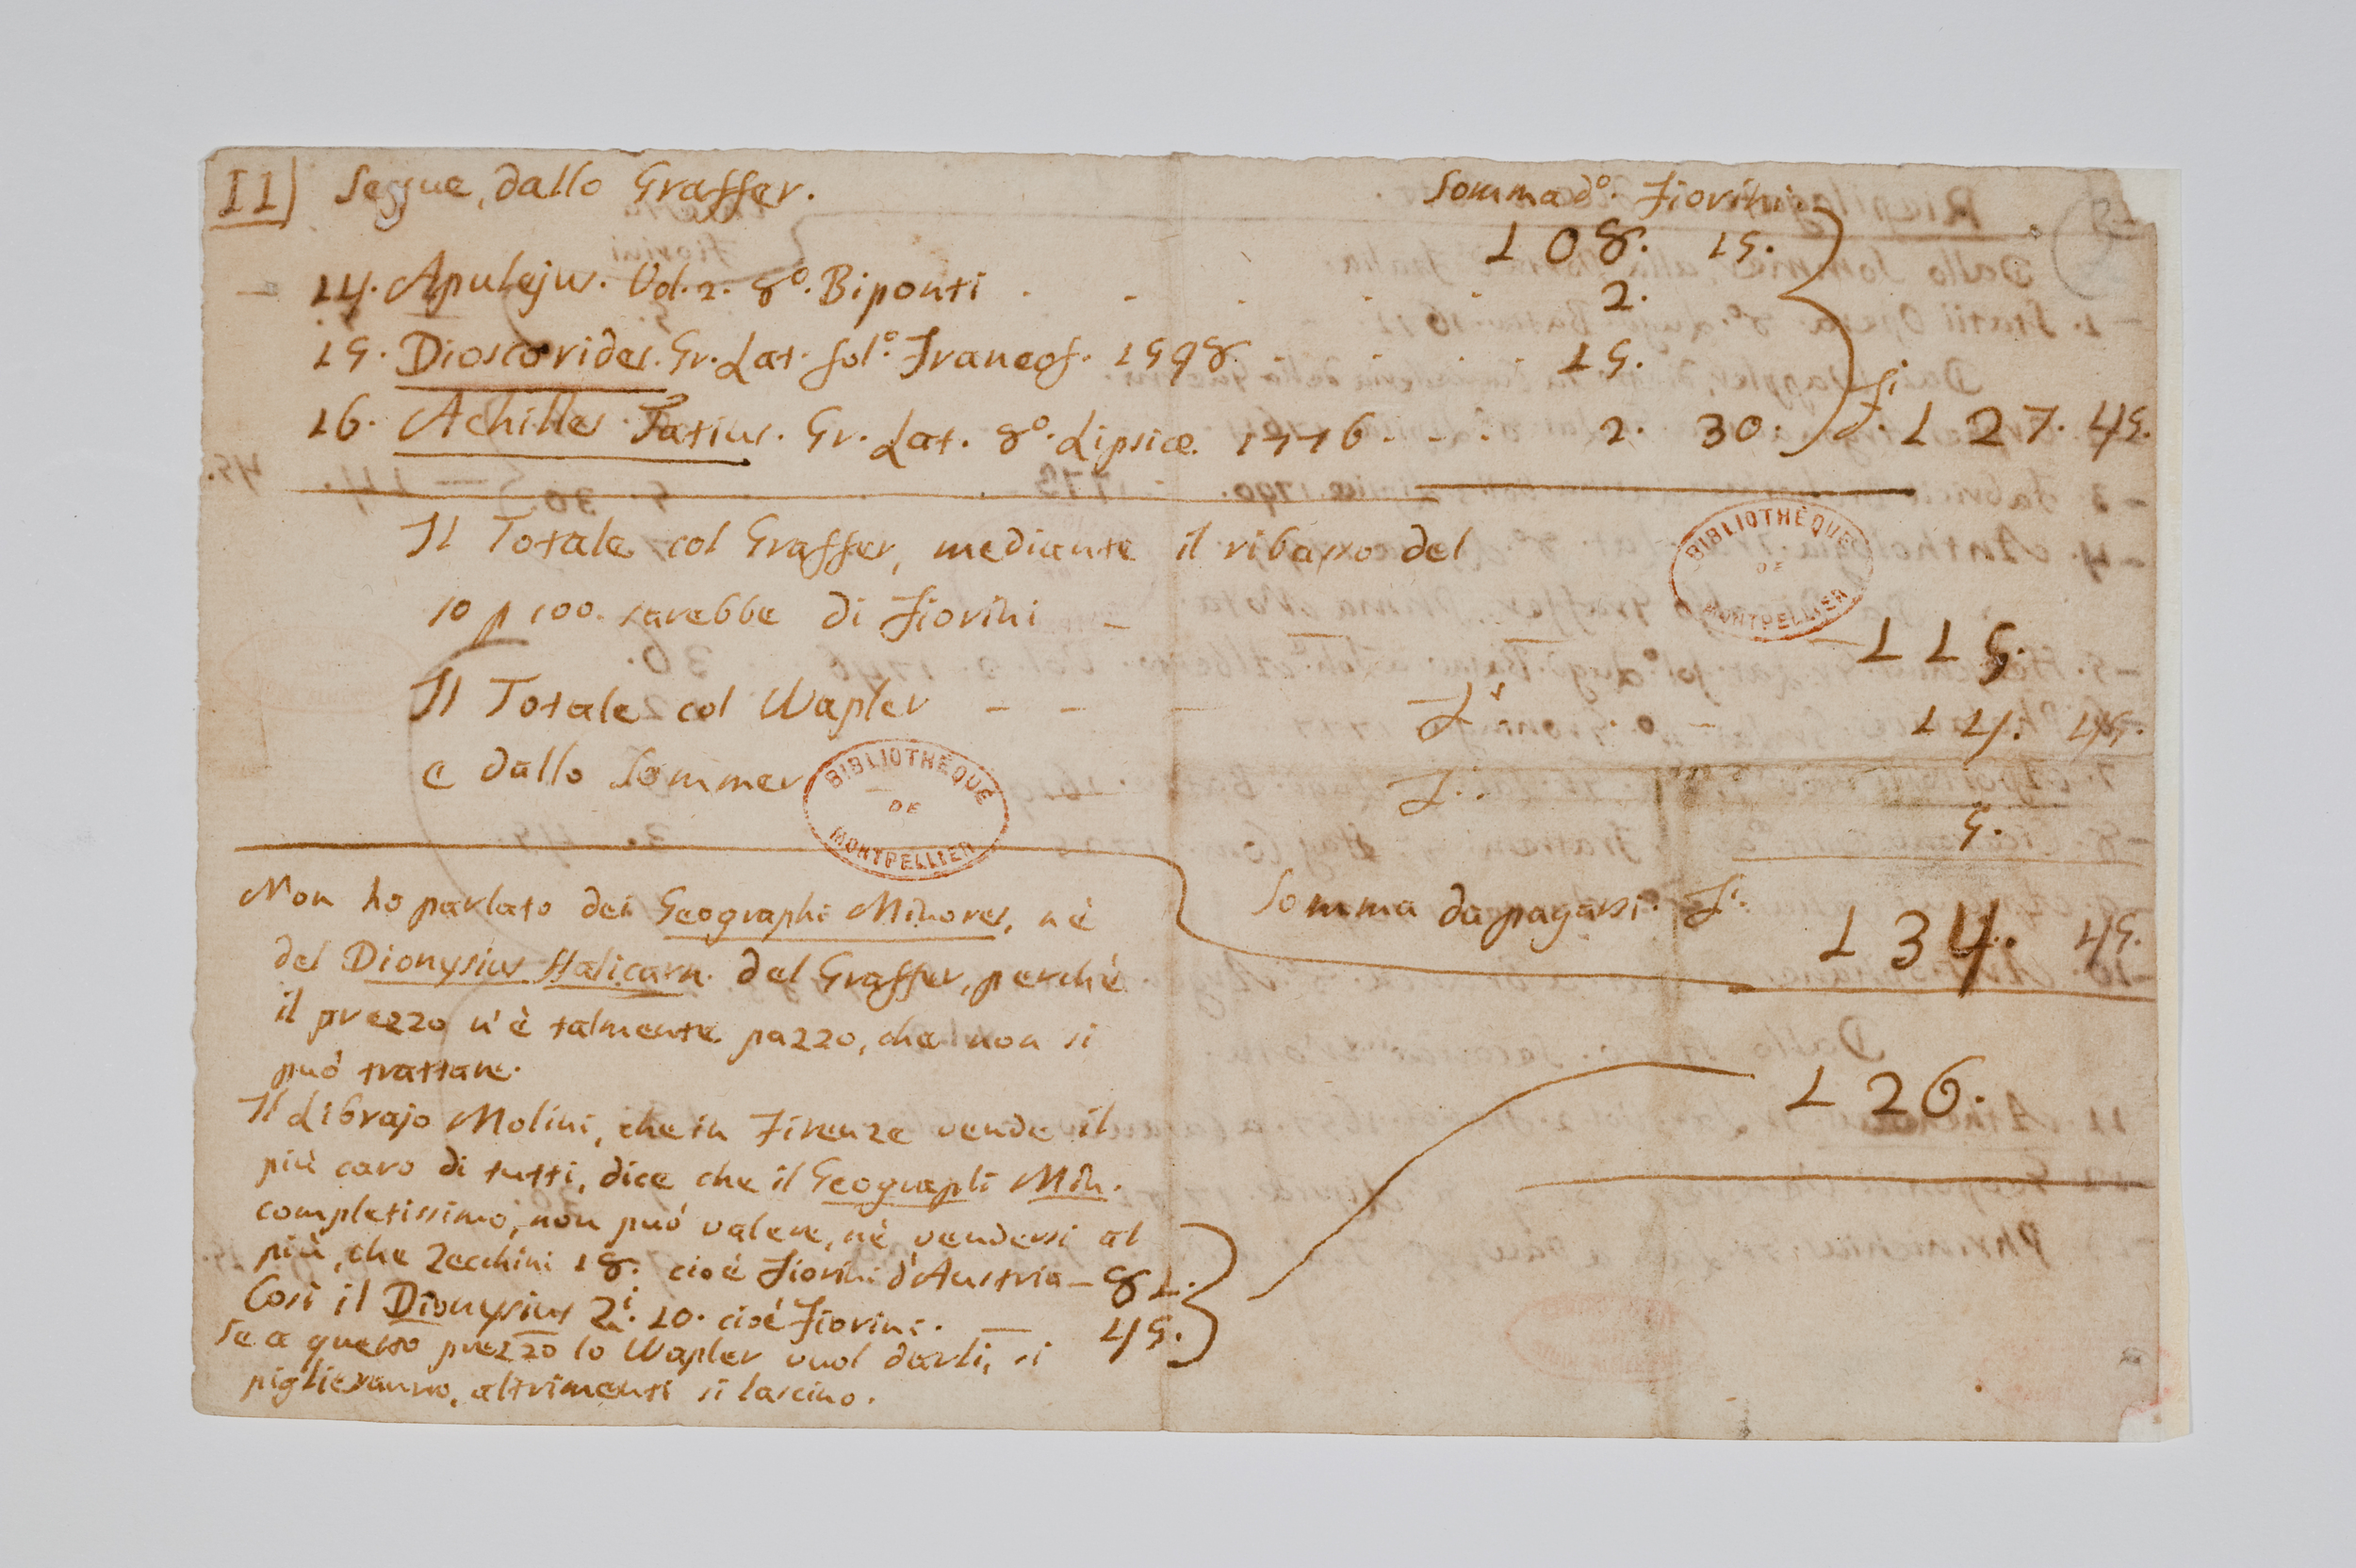 II) Segue, dallo Graffer. Sommado. Fiorini
108. 15.
14. Apulejus. Vol. 2. 8º. Biponti . - . . . 2.
15. Dioscorides. Gr. Lat. fol.º Francof. 1598. 15.
16. Achilles Tatius. Gr. Lat. 8º. Lipsiæ. 1776 - - . 2. 30. fi. 127. 45.
Il Totale col Graffer, mediante il ribasso del
10 p 100. sarebbe di Fiorini - - - - 115.
Il Totale col Wapler - - - Fi 14. 45.
e dallo Sommer - F.. 5.
Somma da pagarsi. Fi. 134. 45.
Non ho parlato dei Geographi Minores, nè
del Dionysius Halicarn. del Graffer, perchè
il prezzo n'è talmente pazzo, che non si
può trattare.
Il Librajo Molini, che in Firenze vende il
più caro di tutti, dice che il Geographi Min.
completissimo, non può valere, nè vendersi al
più, che Zecchini 18. cioè Fiorini d'Austria - 81.
Così il Dionysius Zi. 10. cioè Fiorini. - 45.
126.
Se a questo prezzo lo Wapler vuol darli, si
piglieranno, altrimenti si lascino.
BIBLIOTHÈQUE DE MONTPELLIER
BIBLIOTHÈQUE DE MONTPELLIER